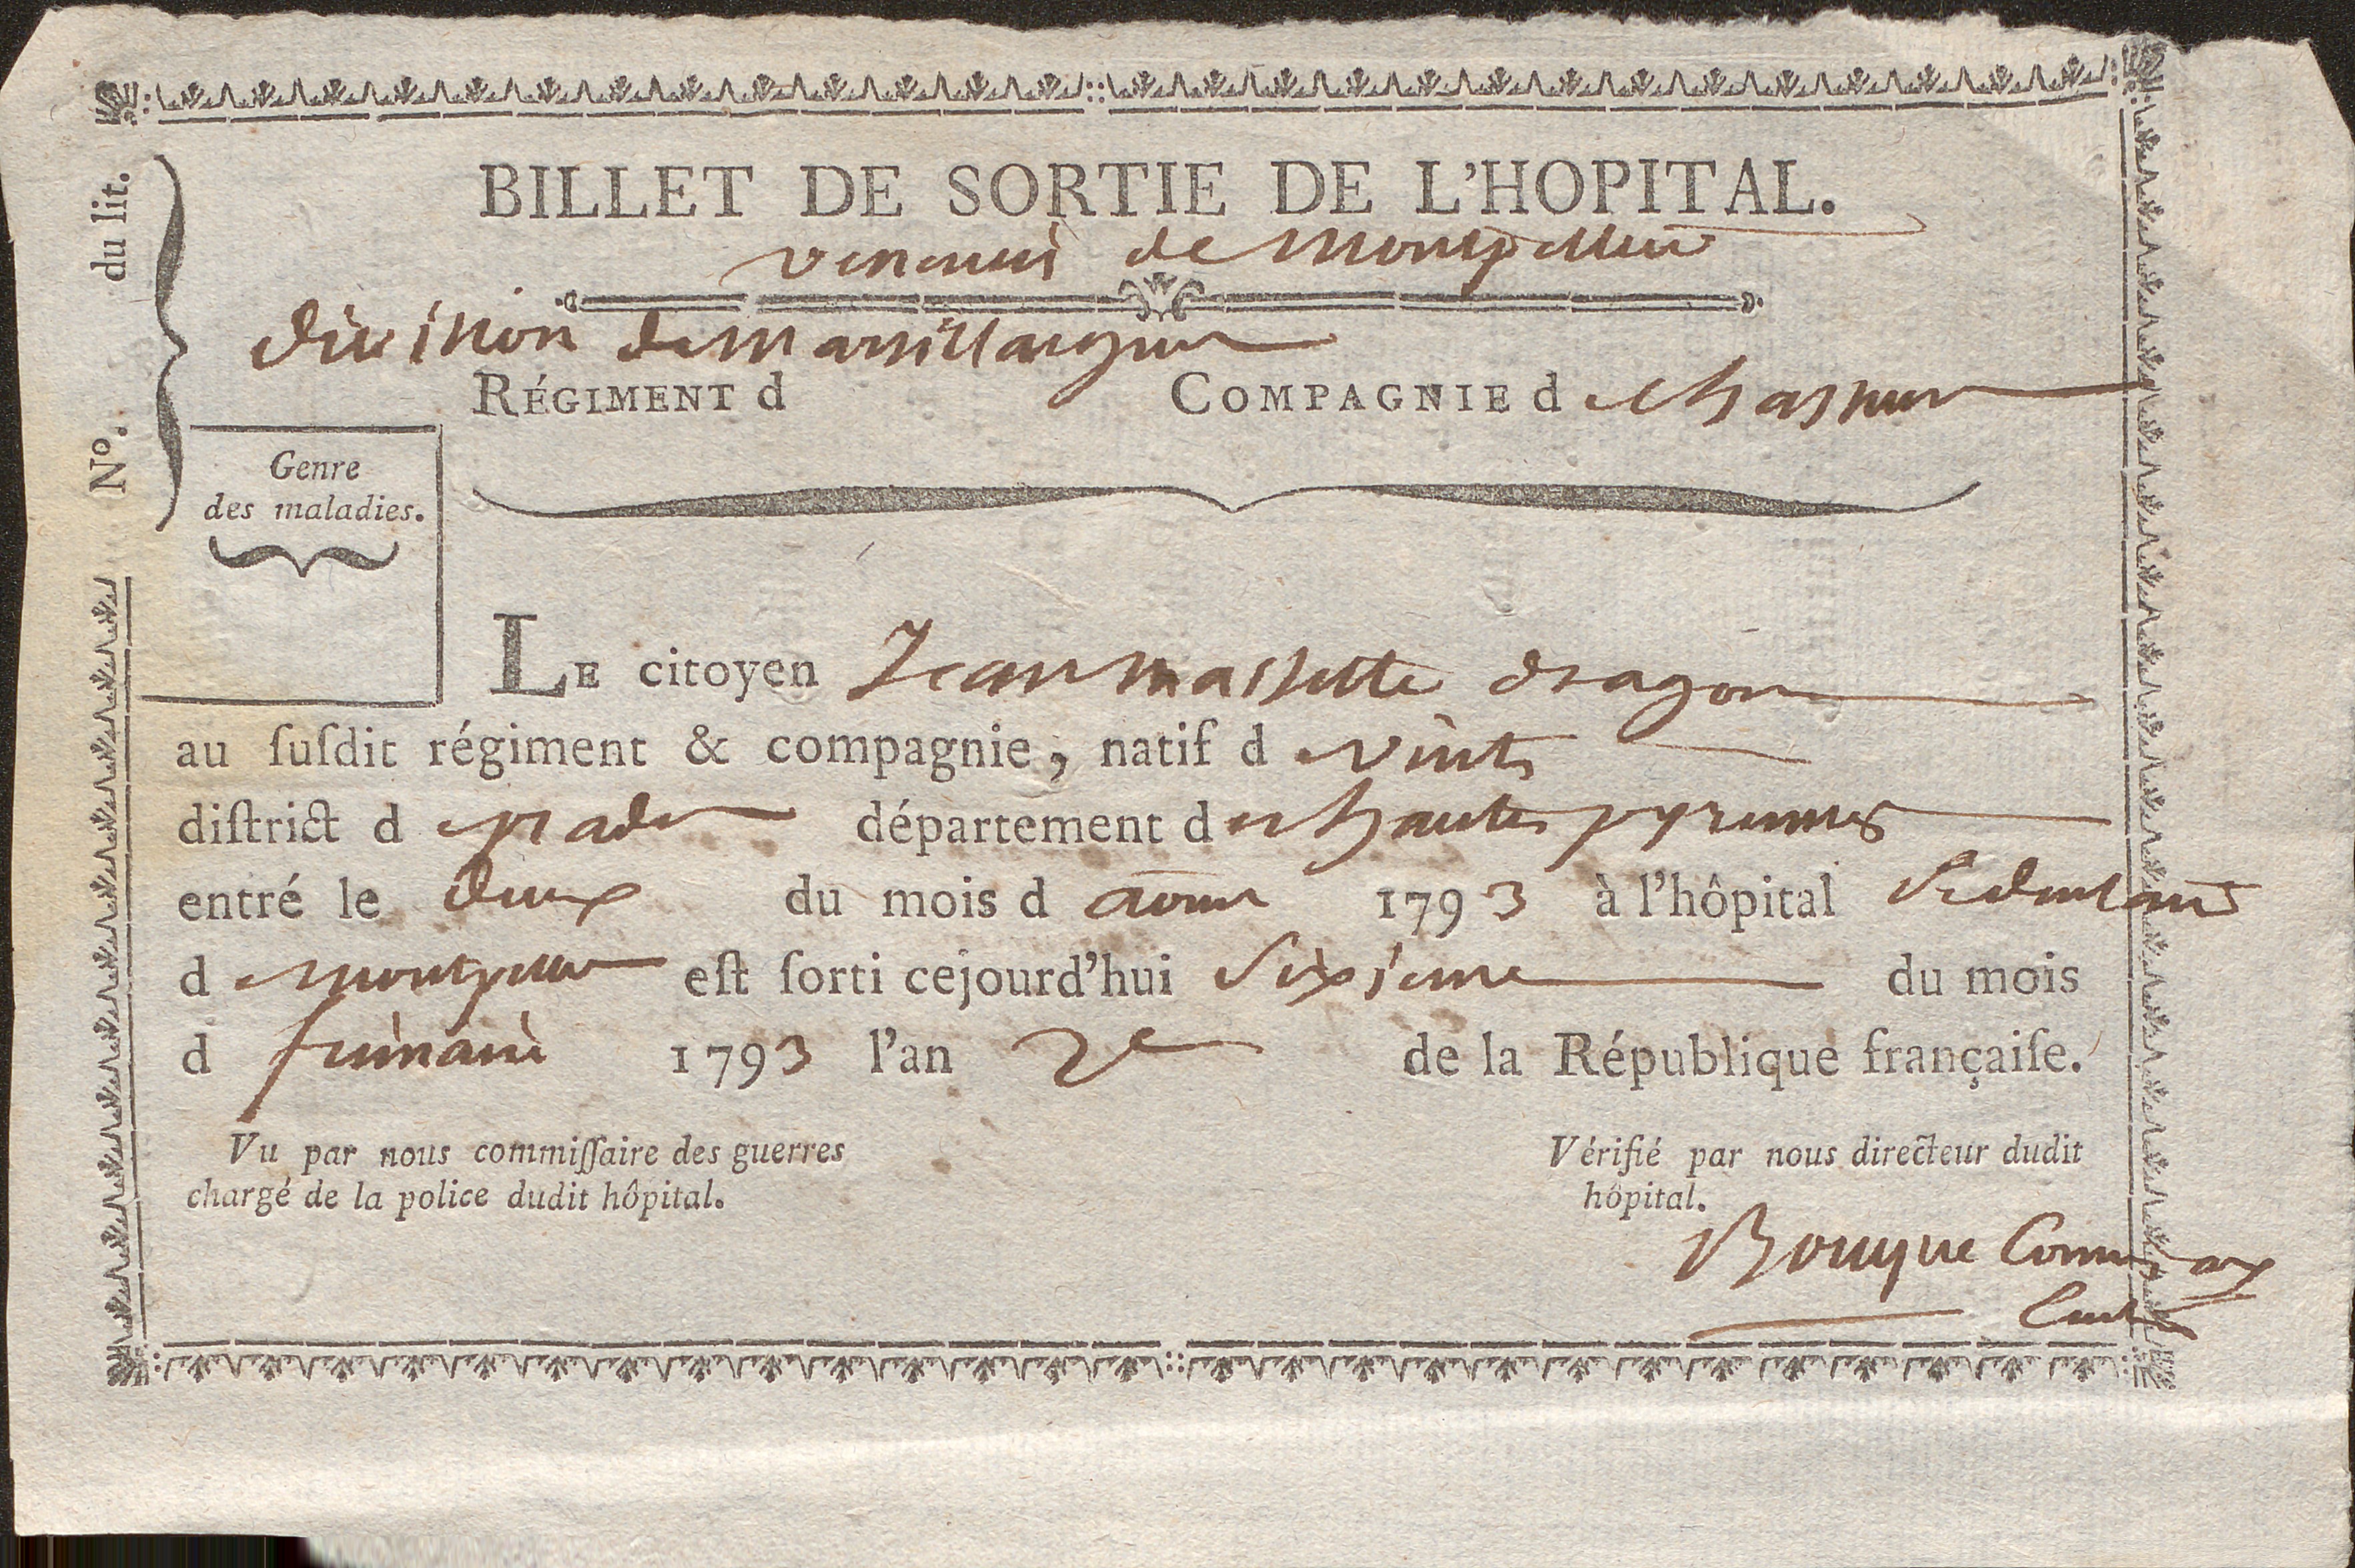 BILLET DE SORTIE DE L'HOPITAL.
de Montpellier
division de marsillargues
RÉGIMENT d COMPAGNIE d e chasseur
N°. du lit.
Genre
des maladies.
LE citoyen Jean massette dragon
au ſuſdit régiment & compagnie, natif d e vints
diſtrict d e prades département d es hautes pyrennees
entré le deux du mois d aoust 1793 à l'hôpital
d e montpellier eſt ſorti cejourd'hui sixieme du mois
d frimaire 1793 l'an 2e de la République françaiſe.
Vu par nous commiſſaire des guerres
chargé de la police dudit hôpital.
Vérifié par nous directeur dudit
hôpital.